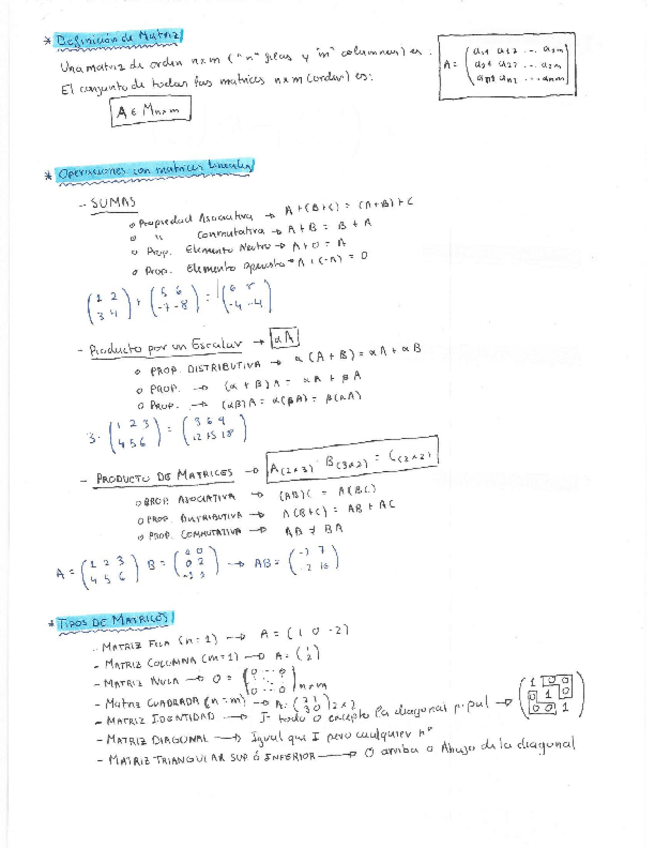 * Definición de Matriz
Una matriz de orden n×m ("n" filas y "m" columnas) es:
A = ( a11 a12 ... a1m
a21 a22 ... a2m
an1 an2 ... anm )
El conjunto de todas las matrices n×m (orden) es:
A ∈ Mn×m
* Operaciones con matrices lineales
- SUMAS
o Propiedad Asociativa → A+(B+C) = (A+B)+C
o " Conmutativa → A+B = B+A
o Prop. Elemento Neutro → A+0 = A
o Prop. Elemento opuesto → A+(-A) = 0
(1 2
3 4) + (5 6
-7 -8) = (6 8
-4 -4)
- Producto por un Escalar → αA
o PROP. DISTRIBUTIVA → α(A+B) = αA + αB
o PROP. → (α+β)A = αA + βA
o PROP. → (αβ)A = α(βA) = β(αA)
3· (1 2 3
4 5 6) = (3 6 9
12 15 18)
- PRODUCTO DE MATRICES → A(2×3) · B(3×2) = C(2×2)
o PROP. ASOCIATIVA → (AB)C = A(BC)
o PROP. DISTRIBUTIVA → A(B+C) = AB + AC
o PROP. CONMUTATIVA → AB ≠ BA
A = (1 2 3
4 5 6) B = → AB =
* TIPOS DE MATRICES
- MATRIZ FILA (n=1) → A = (1 0 -2)
- MATRIZ COLUMNA (m=1) → A = (1
2)
- MATRIZ NULA → O = (0 ... 0
0 ... 0) n×m
- MATRIZ CUADRADA (n=m) → A = 2×2
- MATRIZ IDENTIDAD → I= todo 0 excepto la diagonal p.pal → (1 0 0
0 1 0
0 0 1)
- MATRIZ DIAGONAL → Igual que I pero cualquier nº
- MATRIZ TRIANGULAR SUP Ó INFERIOR → 0 arriba o Abajo de la diagonal